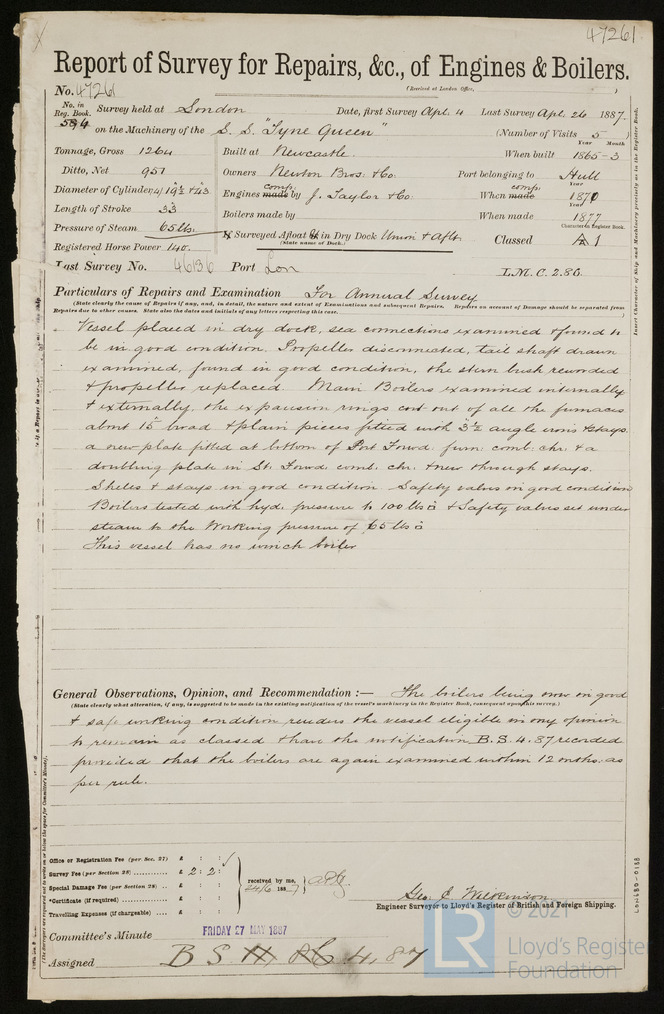 47261
Report of Survey for Repairs, &c., of Engines & Boilers.
(Received at London Office, )
No. 47261
No. in Reg. Book. Survey held at London Date, first Survey Apl. 4 Last Survey Apl. 26 1887.
584 on the Machinery of the S. S. "Tyne Queen" (Number of Visits 5)
Tonnage, Gross 1264 Built at Newcastle. When built Year Month 1865-3
Ditto, Net 957 Owners Newton Bros. & Co. Port belonging to Hull
Diameter of Cylinders 19½ & 43 Engines comp. made by J. Taylor & Co. When comp. made Year 1870
Length of Stroke 33 Boilers made by When made Year 1877
Pressure of Steam 65 lbs. If Surveyed Afloat or in Dry Dock Union & Aflt. Classed Character in Register Book. A 1
(State name of Dock.)
Registered Horse Power 140.
Last Survey No. 46136 Port Lon L.M.C. 2.86.
Particulars of Repairs and Examination For Annual Survey
(State clearly the cause of Repairs if any, and, in detail, the nature and extent of Examinations and subsequent Repairs. Repairs on account of Damage should be separated from
Repairs due to other causes. State also the dates and initials of any letters respecting this case. )
Vessel placed in dry dock, sea connections examined & found to
be in good condition. Propeller disconnected, tail shaft drawn
examined, found in good condition, the stern bush rewooded
& propeller replaced. Main Boilers examined internally
& externally, the expansion rings cut out of all the furnaces
about 15" broad & plain pieces fitted with 3½ angle irons & stays.
a new plate fitted at bottom of Port Forwd furn. comb. chr. & a
doubling plate in St. Forwd comb. chr. & new through stays.
Shells & stays in good condition. Safety valves in good condition
Boilers tested with hyd. pressure to 100 lbs □" & Safety valves set under
steam to the Working pressure of 65 lbs □"
This vessel has no winch boiler
General Observations, Opinion, and Recommendation :— The boilers being now in good
(State clearly what alteration, if any, is suggested to be made in the existing notification of the vessel's machinery in the Register Book, consequent upon this survey.)
& safe working condition renders the vessel eligible in my opinion
to remain as classed & have the notification B.S. 4.87 recorded
provided that the boilers are again examined within 12 months. as
per rule.
Office or Registration Fee (per Sec. 27) £ : :
Survey Fee (per Section 28) £ 2 : 2 :
Special Damage Fee (per Section 28) £ : :
*Certificate (if required) £ : :
Travelling Expenses (if chargeable) £ : :
received by me,
24/6 1887
Geo. J. Wilkinson
Engineer Surveyor to Lloyd's Register of British and Foreign Shipping.
Committee's Minute FRIDAY 27 MAY 1887
Assigned B S 4, 87
© 2021
LR
Lloyd's Register
Foundation